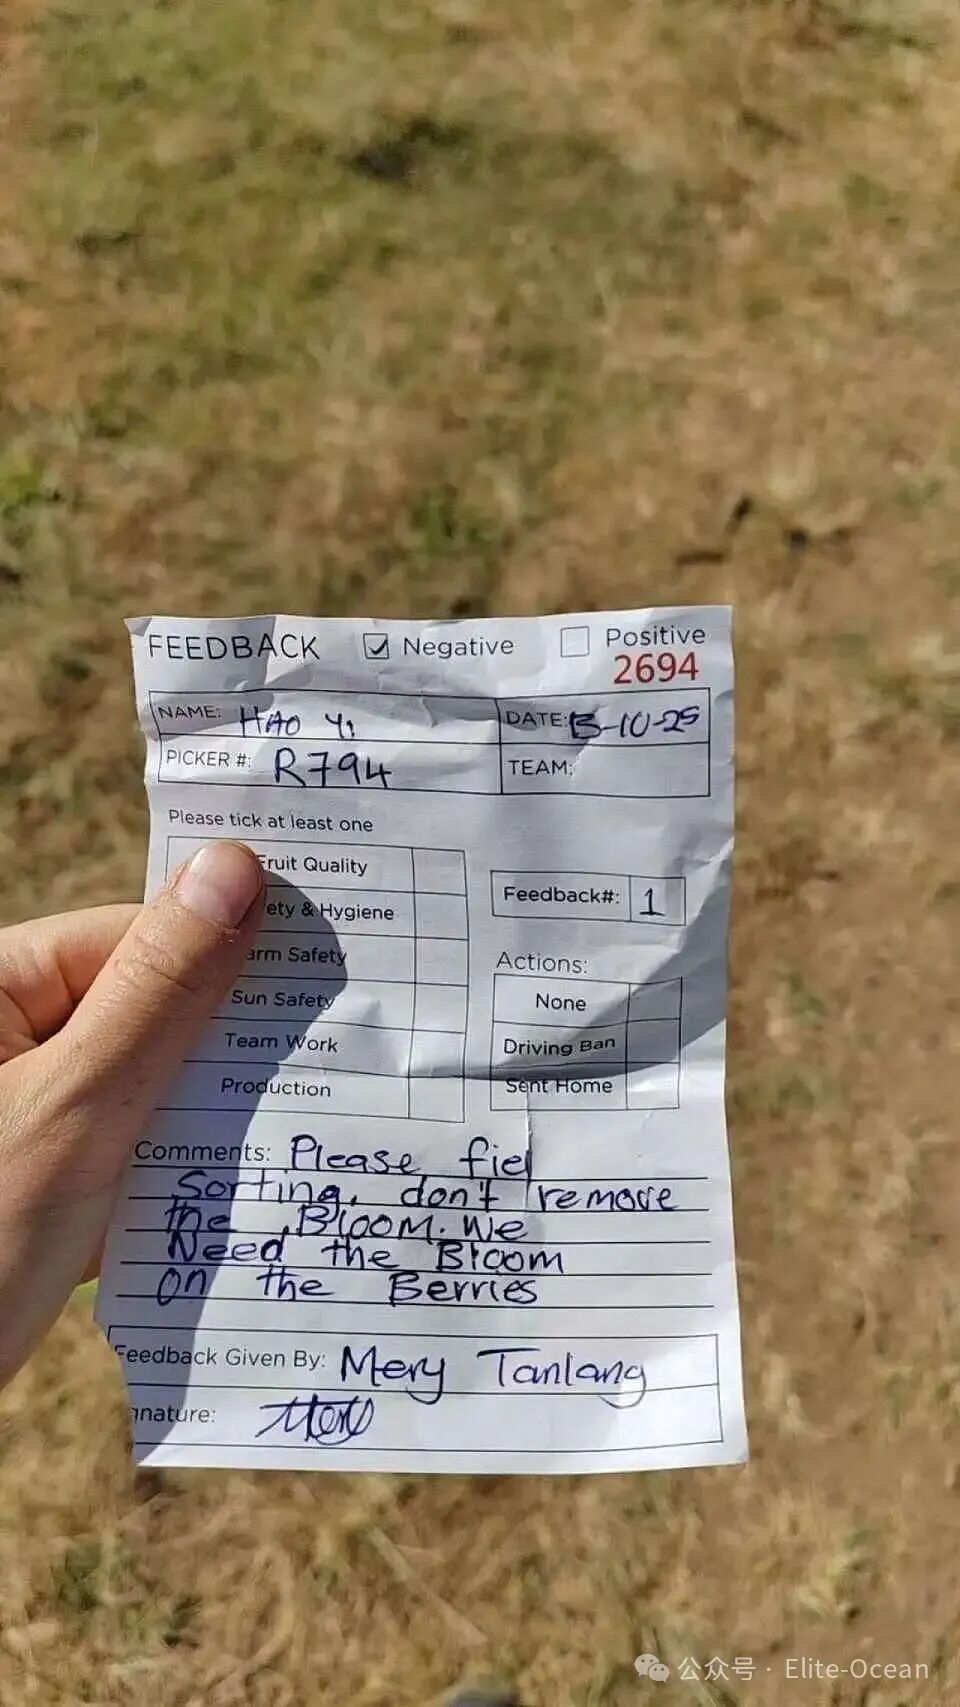 FEEDBACK Negative Positive
2694
NAME: HAO Yi DATE: 13-10-25
PICKER #: R794 TEAM:
Please tick at least one
Fruit Quality
ety & Hygiene
arm Safety
Sun Safety
Team Work
Production
Feedback#: 1
Actions:
None
Driving Ban
Sent Home
Comments: Please fiel
Sorting, don't remove
the Bloom. We
Need the Bloom
on the Berries
Feedback Given By: Mery Tanlang
nature:
公众号 · Elite-Ocean